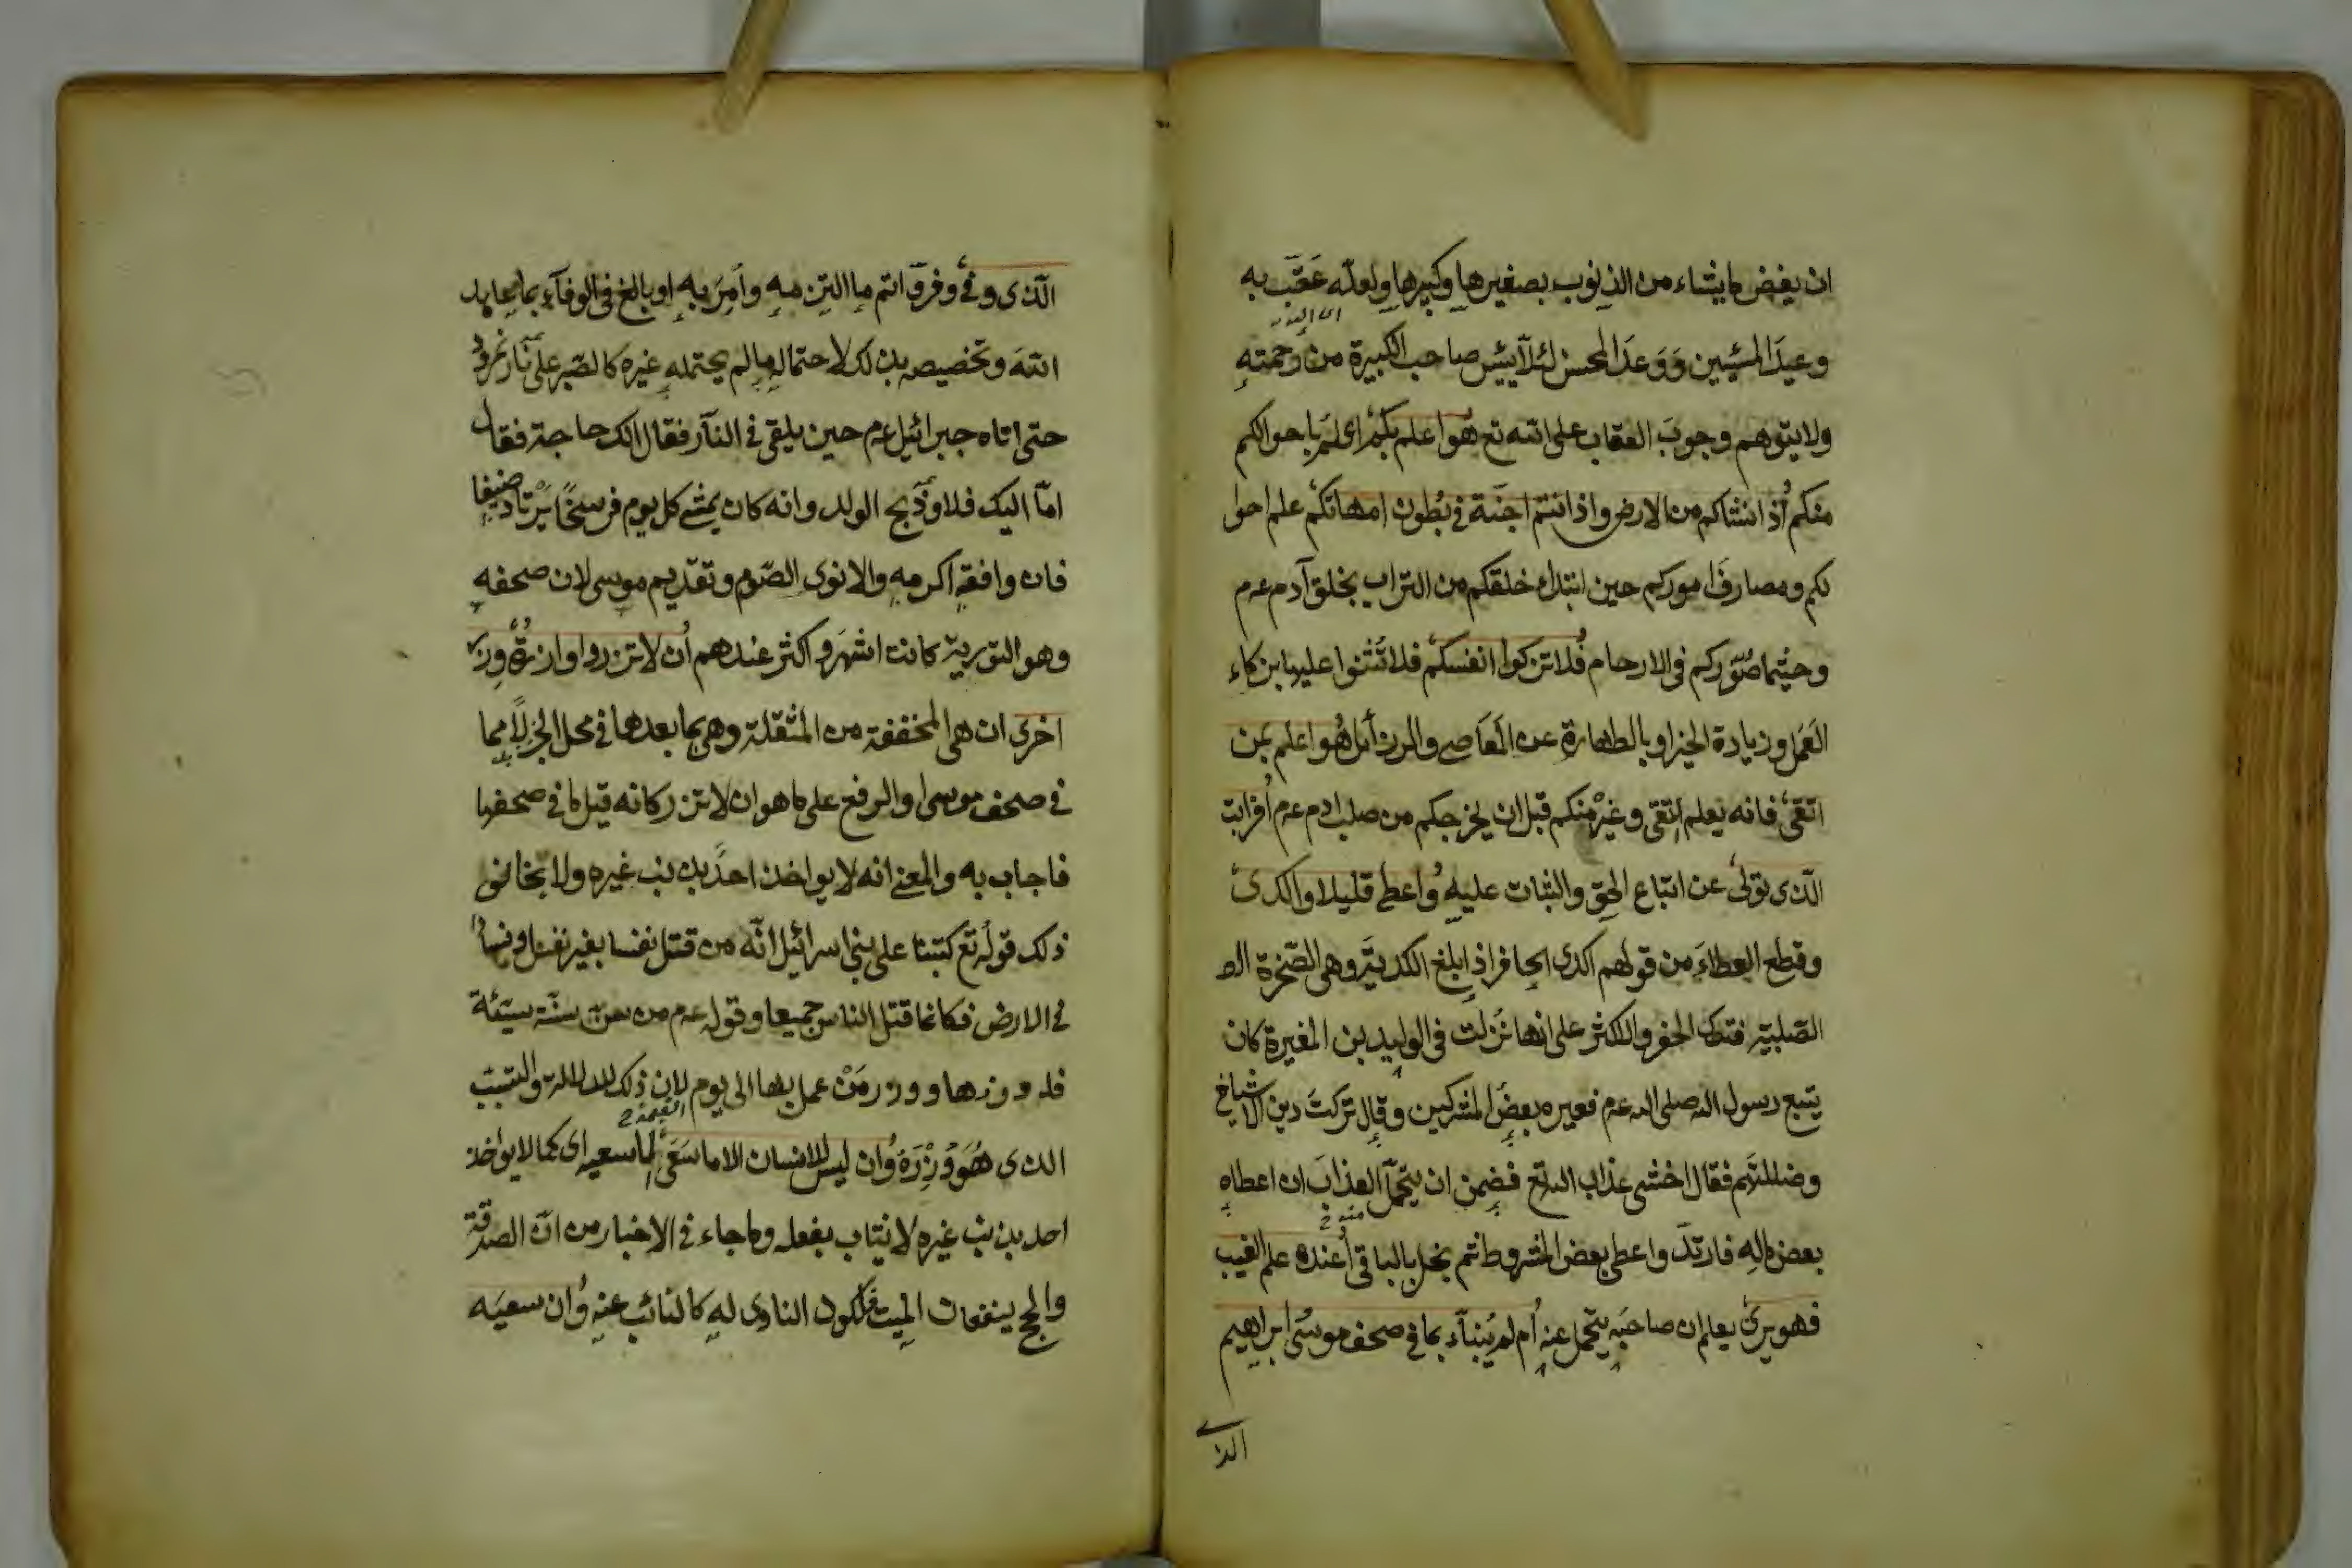 ان يغفر ما يشاء من الذنوب بصغيرها وكبيرها ولعله عَقَّبَ به
وعيدَ المسيئين وَوَعدَ المحسن لئلا ييئس صاحب الكبيرة من رحمته
ولا يتوهم وجوبَ العقاب على الله تع هو اعلم بكم اى اعلم باحوالكم
منكم اذ انشاكم من الارض واذ انتم اجنّة فى بُطون امهاتكم علم احوا
لكم ومصارفَ اموركم حين ابتداء خلقكم من التراب بخلق آدم عم
وحيثما صُوّركم فى الارحام فلا تزكوا انفسكم فلا تُثنوا عليها بزكاء
العَمَل وزيادة الخير او بالطهارة عن المعَاصى والرذائل هُو اعلم بمن
اتقى فانه يعلم التقى وغيرَه منكم قبل ان يخرجكم من صلب ادم عم افرايت
الّذى تولى عن اتباع الحق والثبات عليه واعطى قليلا واكدى
وقطع العطاءَ من قولهم اكدى الحافر اذا بلغ الكدية وهى الصّخرة الـ
الصّلبية فترك الحفر والاكثر على انها نُزلت فى الوليد بن المغيرة كان
يتبع رسول الله صلى الله عم فعيره بعض المشركين وقال تركتَ دين الاشياخ
وضللتَهم فقال اخشى عذاب الله تع فضمن ان يتحمّل العذابَ ان اعطاه
منه
بعض ماله فارتدّ واعطى بعض المشروط ثم بخل بالباقى أعنده علم الغيب
فهو يرى يعلم ان صاحبَه يتحمل عنه أم لم يُنبّاء بما فى صحف موسى ابراهيم
الذ
الّذى وفى وفرّ واتم ما التزمه وأُمِرَ به او بالغ فى الوفاء بما عاهد
اللهَ وتخصيصه بذلك لاحتماله ما لم يحتمله غيره كالصّبر على نار نمرود
حتى اتاه جبرائيل عم حين يلقى فى النّار فقال الك حاجة فقال
امّا اليك فلا وذبح الولد وانه كان يمشى كل يوم فرسخًا يرتاد ضيفا
فان وافقه اكرمه والا نوى الصّوم وتقديم موسى لان صحفه
وهو التورية كانت اشهَر واكثر عندهم أن لا تزر وازرة وِزر
اخرى ان هى المخففة من المثقلة وهى بما بعدها فى محل الجر بدلًا مما
فى صحف موسى او الرفع على ما هو ان لا تزر كانه قيل ما فى صحفها
فاجاب به والمعنى انه لا يواخذ احدٌ بذنب غيره ولا يخالف
ذلك قوله تع كتبنا على بنى اسرائيل انّه من قتل نفسا بغير نفس او فسادٍ
فى الارض فكانما قتل الناس جميعا وقوله عم من سنّ سنّة سيّئة
فله وزرها ووزر مَنْ عمل بها الى يوم القيمة لان ذلك للدلالة والتسبّب
الذى هُوَ وِزْرَهُ وان ليس للانسان الا ما سَعَى الا سعيه اى كما لا يواخذ
احد بذنب غيره لا يثاب بفعله وما جاء فى الاخبار من انّ الصدقة
والحج ينفعان الميت فلكون الناوى له كالنائب عنه وان سعيَه